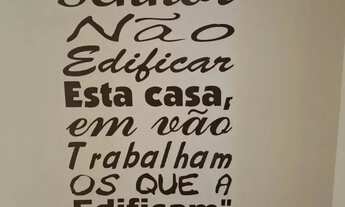 Senhor
Não
Edificar
Esta casa,
em vão
Trabalham
OS QUE A
Edificam"